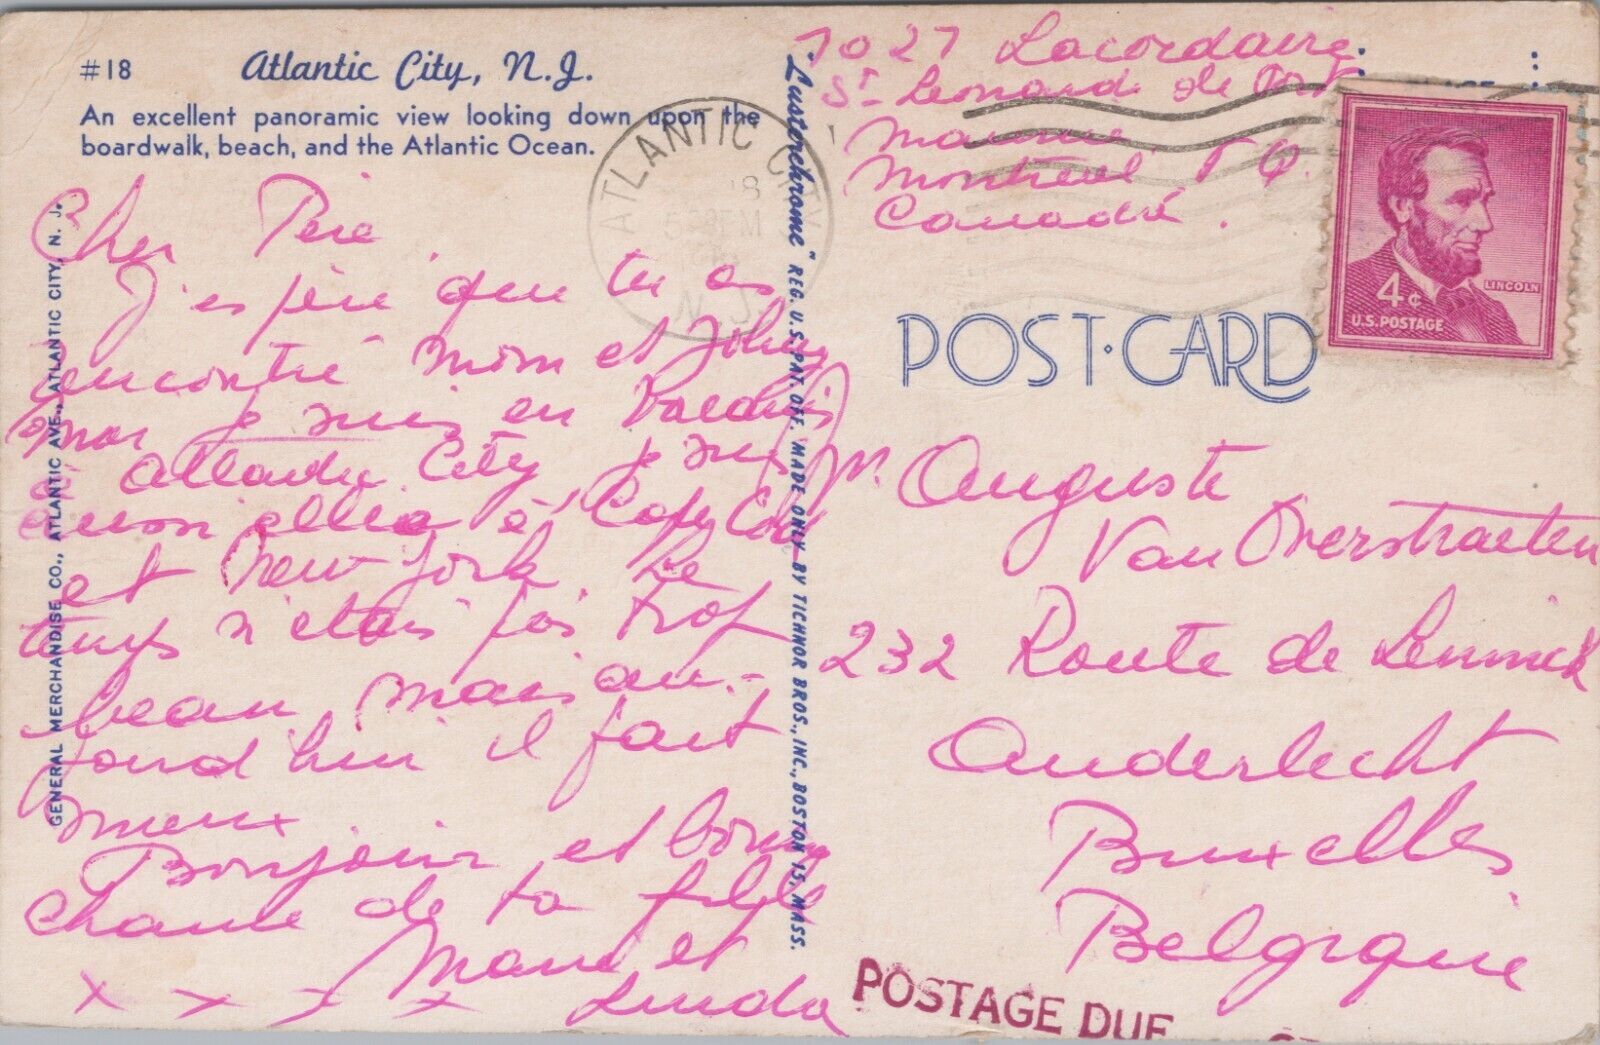 #18 Atlantic City, N.J.
An excellent panoramic view looking down upon the
boardwalk, beach, and the Atlantic Ocean.
GENERAL MERCHANDISE CO., ATLANTIC AVE., ATLANTIC CITY, N. J.
Cher Père
J'espère que tu as
rencontré Mom et Johnny
moi je suis en
à Atlantic City je suis
aussi allée à Cape Cod
et New-York. Le
temps n'étais pas trop
beau, mais au-
jourd'hui il fait
mieux
Bonjour et bonne
chance de ta fille
et
Linda
x x x x
"Lusterchrome" REG. U.S. PAT. OFF. MADE ONLY BY TICHNOR BROS., INC., BOSTON 15, MASS.
7027 Lacordaire
St-Leonard de Port
Maurice
Montreal P Q.
Canada.
ATLANTIC CITY
N.J.
4¢
LINCOLN
U.S. POSTAGE
POST·CARD
Mr. Auguste
Van Overstraeten
232 Route de Lennick
Anderlecht
Bruxelles
Belgique
POSTAGE DUE